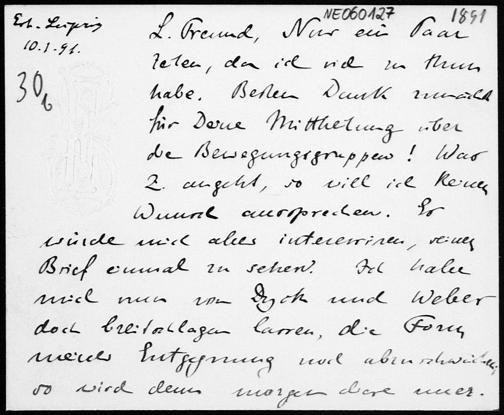 NE060127 1891
Erh. Leipzig
10.1.91.
30b
L. Freund, Nur ein Paar
Zeilen, da ich viel zu thun
habe. Besten Dank zunächst
für Deine Mittheilung über
die Bewegungsgruppen! Was
Z. angeht, so will ich keinen
Wunsch aussprechen. Es
würde mich aber interessiren, seinen
Brief einmal zu sehen. Ich habe
mich nun von Dyck und Weber
doch breitschlagen lassen, die Form
meiner Entgegnung noch abzuschwächen,
so wird denn morgen diese neue